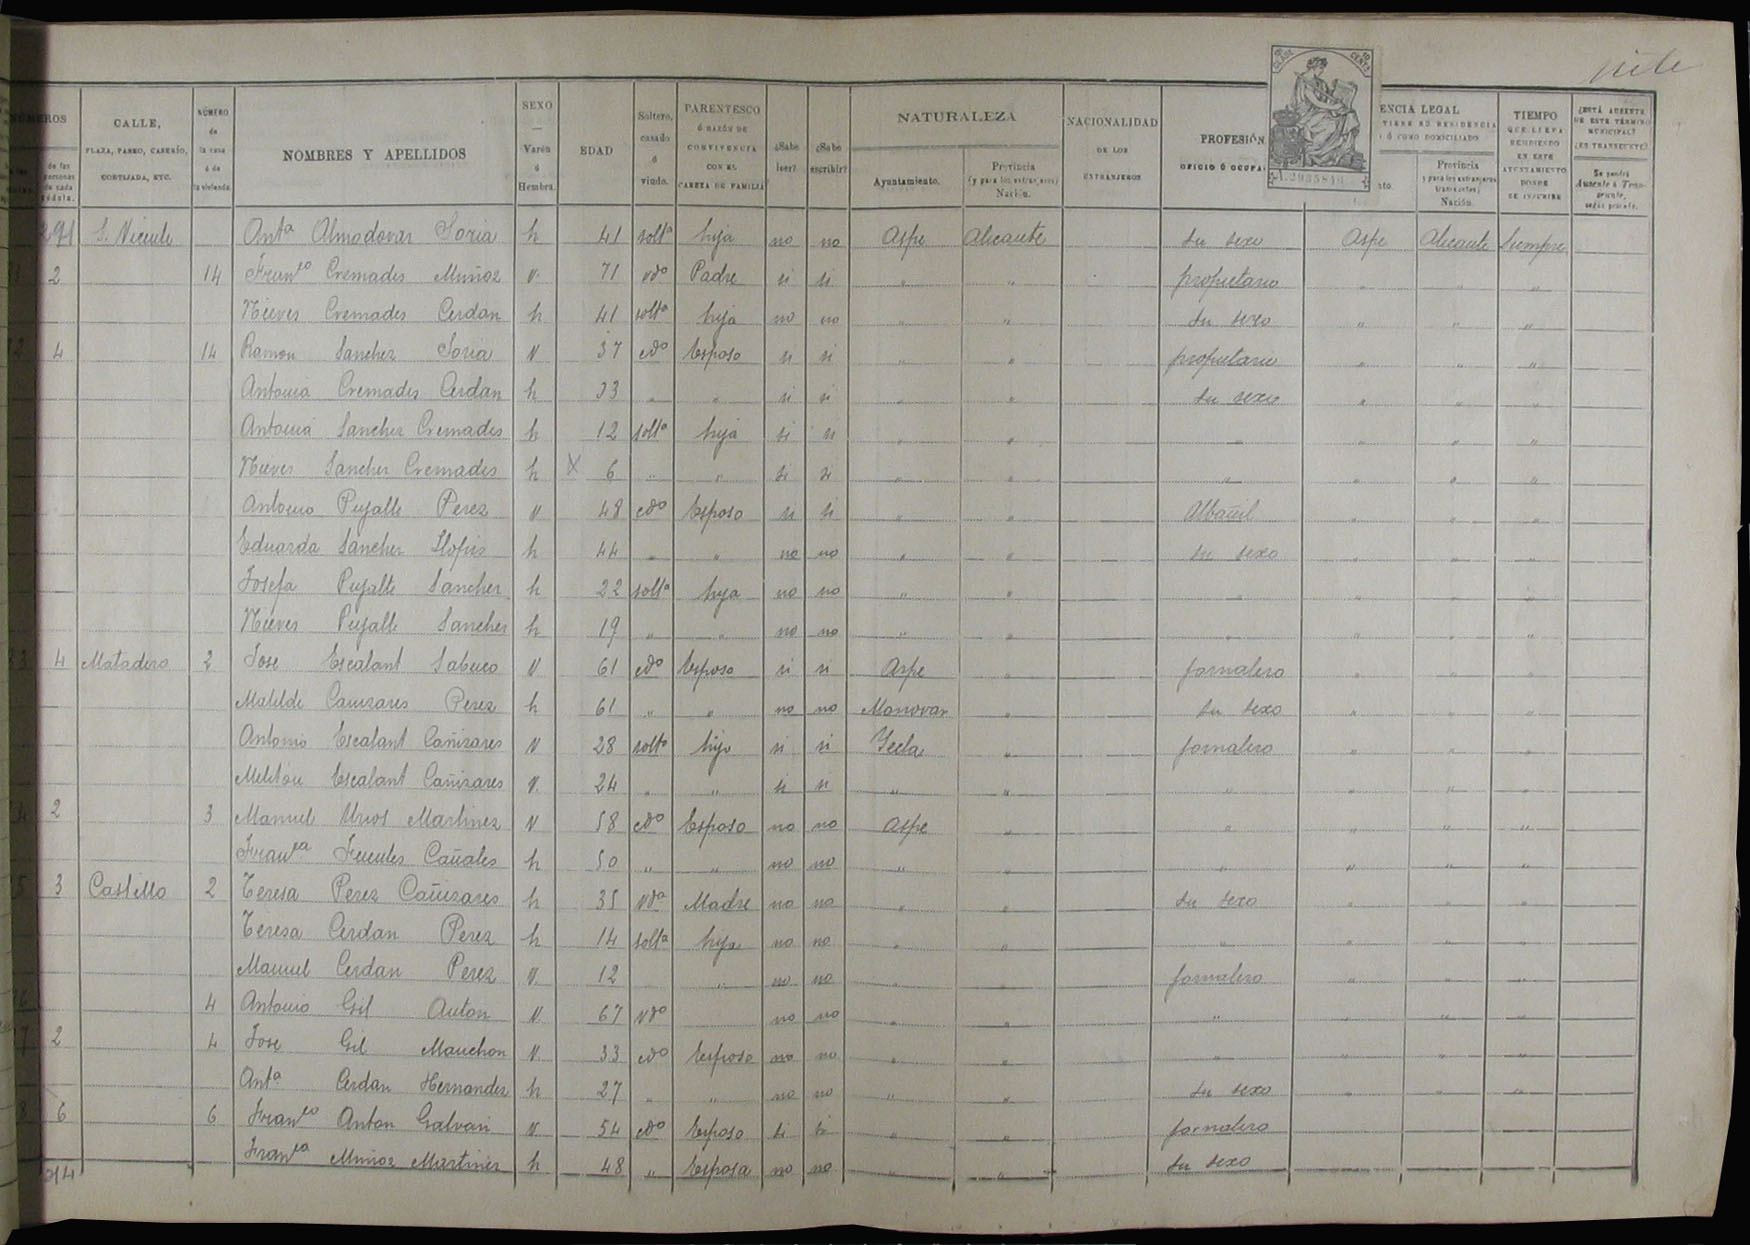 siete
NÚMEROS
de las personas de cada cédula.
CALLE, PLAZA, PASEO, CASERÍO, CORTIJADA, ETC.
NÚMERO de la casa ó de la vivienda.
NOMBRES Y APELLIDOS
SEXO — Varón ó Hembra.
EDAD
Soltero, casado ó viudo.
PARENTESCO Ó RAZÓN DE CONVIVENCIA CON EL CABEZA DE FAMILIA
¿Sabe leer?
¿Sabe escribir?
NATURALEZA
Ayuntamiento.
Provincia (y para los extranjeros) Nación.
NACIONALIDAD DE LOS EXTRANJEROS
PROFESIÓN OFICIO Ó OCUPA
ENCIA LEGAL TIENE SU RESIDENCIA Ó COMO DOMICILIADO
nto.
Provincia (y para los extranjeros transeuntes) Nación.
TIEMPO QUE LLEVA RESIDIENDO EN ESTE AYUNTAMIENTO DONDE SE INSCRIBE
¿ESTÁ AUSENTE DE ESTE TÉRMINO MUNICIPAL? ¿ES TRANSEUNTE?
Se pondrá Ausente ó Transeunte, según proceda.
CLASE 10 CENTS
291 S. Vicente Antª Almodovar Soria h 41 soltª hija no no Aspe Alicante su sexo Aspe Alicante Siempre
2 14 Francº Cremades Muñoz v. 71 vdº Padre si si " " propietario " " "
Nieves Cremades Cerdan h 41 soltª hija no no " " su sexo " " "
4 14 Ramon Sanchez Soria v 37 cdº Esposo si si " " propietario " " "
Antonia Cremades Cerdan h 33 " " si si " " su sexo " " "
Antonia Sanchez Cremades h 12 soltª hija si si " " " " " "
Nieves Sanchez Cremades h X 6 " " si si " " " " " "
Antonio Pujalte Perez v 48 cdº Esposo si si " " Albañil " " "
Eduarda Sanchez Llopis h 44 " " no no " " su sexo " " "
Josefa Pujalte Sanchez h 22 soltª hija no no " " " " " "
Nieves Pujalte Sanchez h 19 " " no no " " " " " "
4 Matadero 2 Jose Escalant Sabuco v 61 cdº Esposo si si Aspe " jornalero " " "
Matilde Cañizares Perez h 61 " " no no Monovar " su sexo " " "
Antonio Escalant Cañizares v 28 soltº hijo si si Yecla " jornalero " " "
Meliton Escalant Cañizares v. 24 " " si si " " " " " "
2 3 Manuel Urios Martinez v 58 cdº Esposo no no Aspe " " " " "
Francª Fuentes Cañales h 50 " " no no " " " " " "
3 Castillo 2 Teresa Perez Cañizares h 35 vdª Madre no no " " su sexo " " "
Teresa Cerdan Perez h 14 soltª hija no no " " " " " "
Manuel Cerdan Perez v. 12 " no no " " jornalero " " "
4 Antonio Gil Anton v. 67 vdº no no " " " " " "
2 4 Jose Gil Manchon v. 33 cdº Esposo no no " " " " " "
Antª Cerdan Hernandez h 27 " " no no " " su sexo " " "
6 6 Francº Anton Galvan v. 54 cdº Esposo si si " " jornalero
Francª Muñoz Martinez h 48 " Esposa no no " " su sexo
314